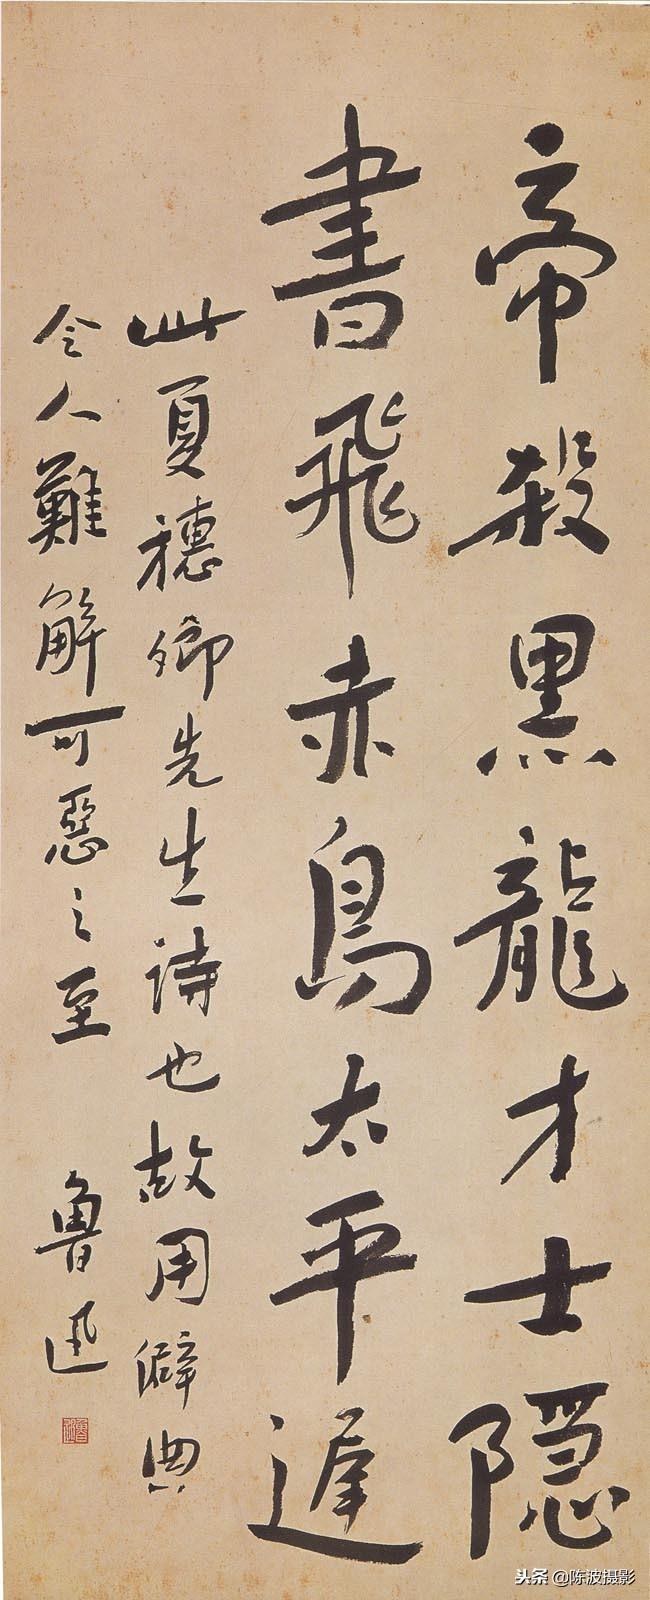 帝殺黑龍才士隱
書飛赤鳥太平遲
此夏穗卿先生詩也故用僻典
令人難解可惡之至
魯迅
魯迅
头条 @陈波摄影